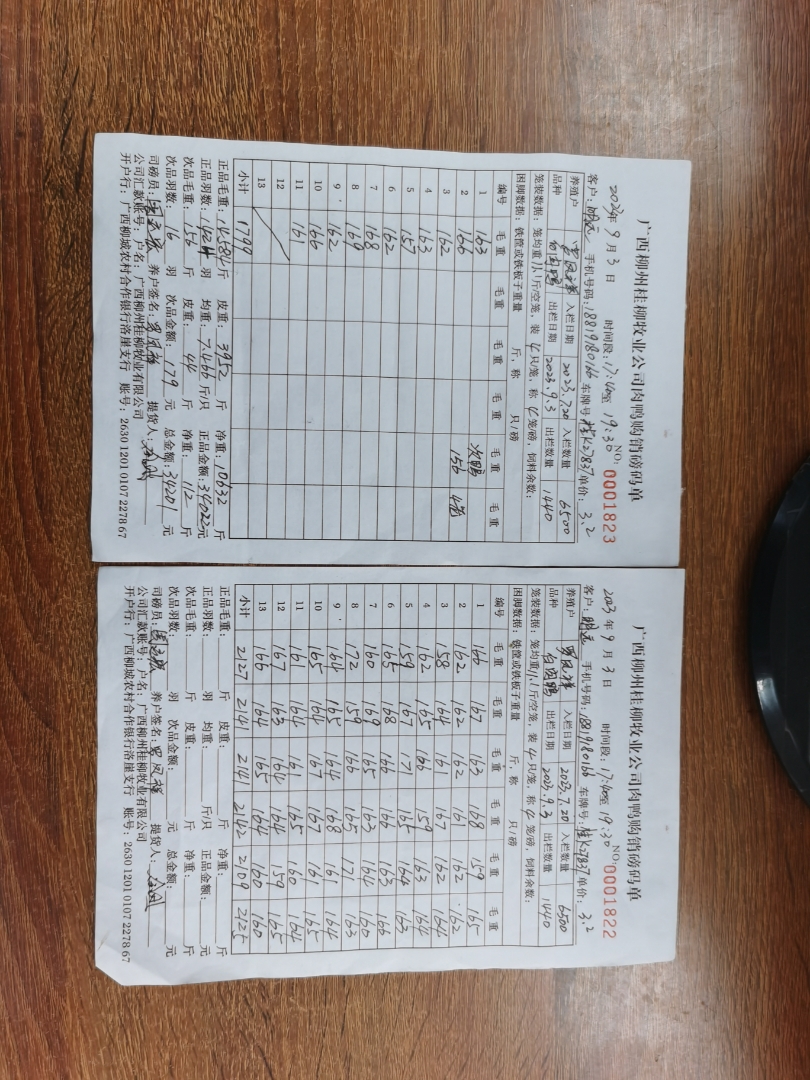 广西柳州桂柳牧业公司肉鸭购销磅码单
NO: 0001823
2023年 9月 3日 时间段: 17:40至 19:30
客户: 手机号码: 18819180166 车牌号 桂K27837 单价: 3.2
养殖户 罗凤祥 入栏日期 2023.7.20 入栏数量 6500
品种 白肉鸭 出栏日期 2023.9.3 出栏数量 1440
笼装数据: 笼均重11.1斤/空笼, 装 4只/笼, 称 4笼/磅; 饲料余数:
困脚数据: 铁镫或铁板子重量 斤, 称 只/磅
编号 毛重 毛重 毛重 毛重 毛重 毛重
1 163 次鸭
2 166 156 4笼
3 162
4 163
5 157
6 162
7 168
8 169
9 162
10 166
11 161
12
13
小计 1799
正品毛重: 14584斤 皮重: 3952斤 净重: 10632斤
正品羽数: 1424羽 均重: 7.466斤/只 正品金额: 34022元
次品毛重: 156斤 皮重: 44斤 净重: 112斤
次品羽数: 16羽 次品金额: 179元 总金额: 34201元
司磅员: 养户签名: 罗凤祥 提货人:
公司汇款账号: 户名: 广西柳州桂柳牧业有限公司
开户行: 广西柳城农村合作银行洛崖支行 账号: 2630 1201 0107 2278 67
广西柳州桂柳牧业公司肉鸭购销磅码单
NO: 0001822
2023年 9月 3日 时间段: 17:40至 19:30
客户: 手机号码: 18819180166 车牌号: 桂K27837 单价: 3.2
养殖户 罗凤祥 入栏日期 2023.7.20 入栏数量 6500
品种 白肉鸭 出栏日期 2023.9.3 出栏数量 1440
笼装数据: 笼均重11.1斤/空笼, 装 4只/笼, 称 4笼/磅; 饲料余数:
困脚数据: 铁镫或铁板子重量 斤, 称 只/磅
编号 毛重 毛重 毛重 毛重 毛重 毛重
1 166 167 163 168 159 165
2 162 162 162 161 162 162
3 158 164 161 167 162 164
4 162 165 166 159 163 164
5 159 167 171 165 164 163
6 165 168 166 166 163 166
7 160 169 165 163 164 160
8 172 159 166 165 171 163
9 164 165 164 168 161 164
10 165 164 167 167 161 165
11 161 164 161 165 160 164
12 167 163 164 164 159 165
13 166 164 165 164 160 160
小计 2127 2141 2141 2142 2109 2125
正品毛重: 斤 皮重: 斤 净重: 斤
正品羽数: 羽 均重: 斤/只 正品金额: 元
次品毛重: 斤 皮重: 斤 净重: 斤
次品羽数: 羽 次品金额: 元 总金额: 元
司磅员: 养户签名: 罗凤祥 提货人:
公司汇款账号: 户名: 广西柳州桂柳牧业有限公司
开户行: 广西柳城农村合作银行洛崖支行 账号: 2630 1201 0107 2278 67